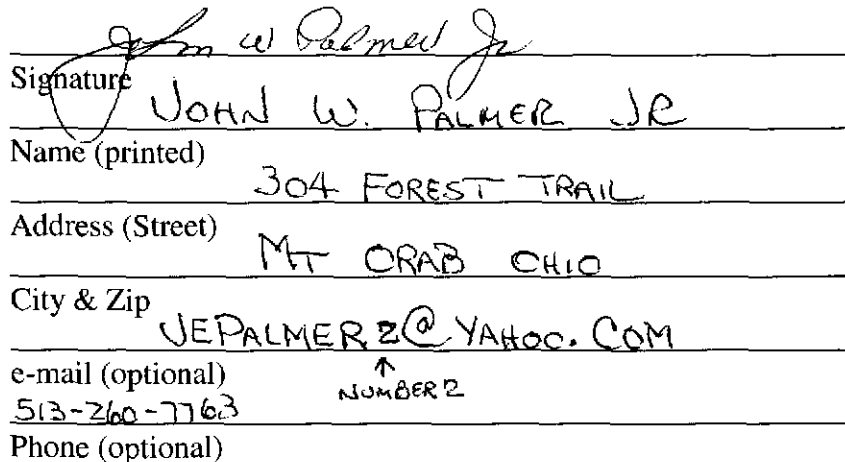 John W Palmer Jr
Signature
JOHN W. PALMER JR
Name (printed)
304 FOREST TRAIL
Address (Street)
MT ORAB OHIO
City & Zip
JEPALMER2@YAHOO.COM
e-mail (optional)
↑
NUMBER 2
513-260-7763
Phone (optional)